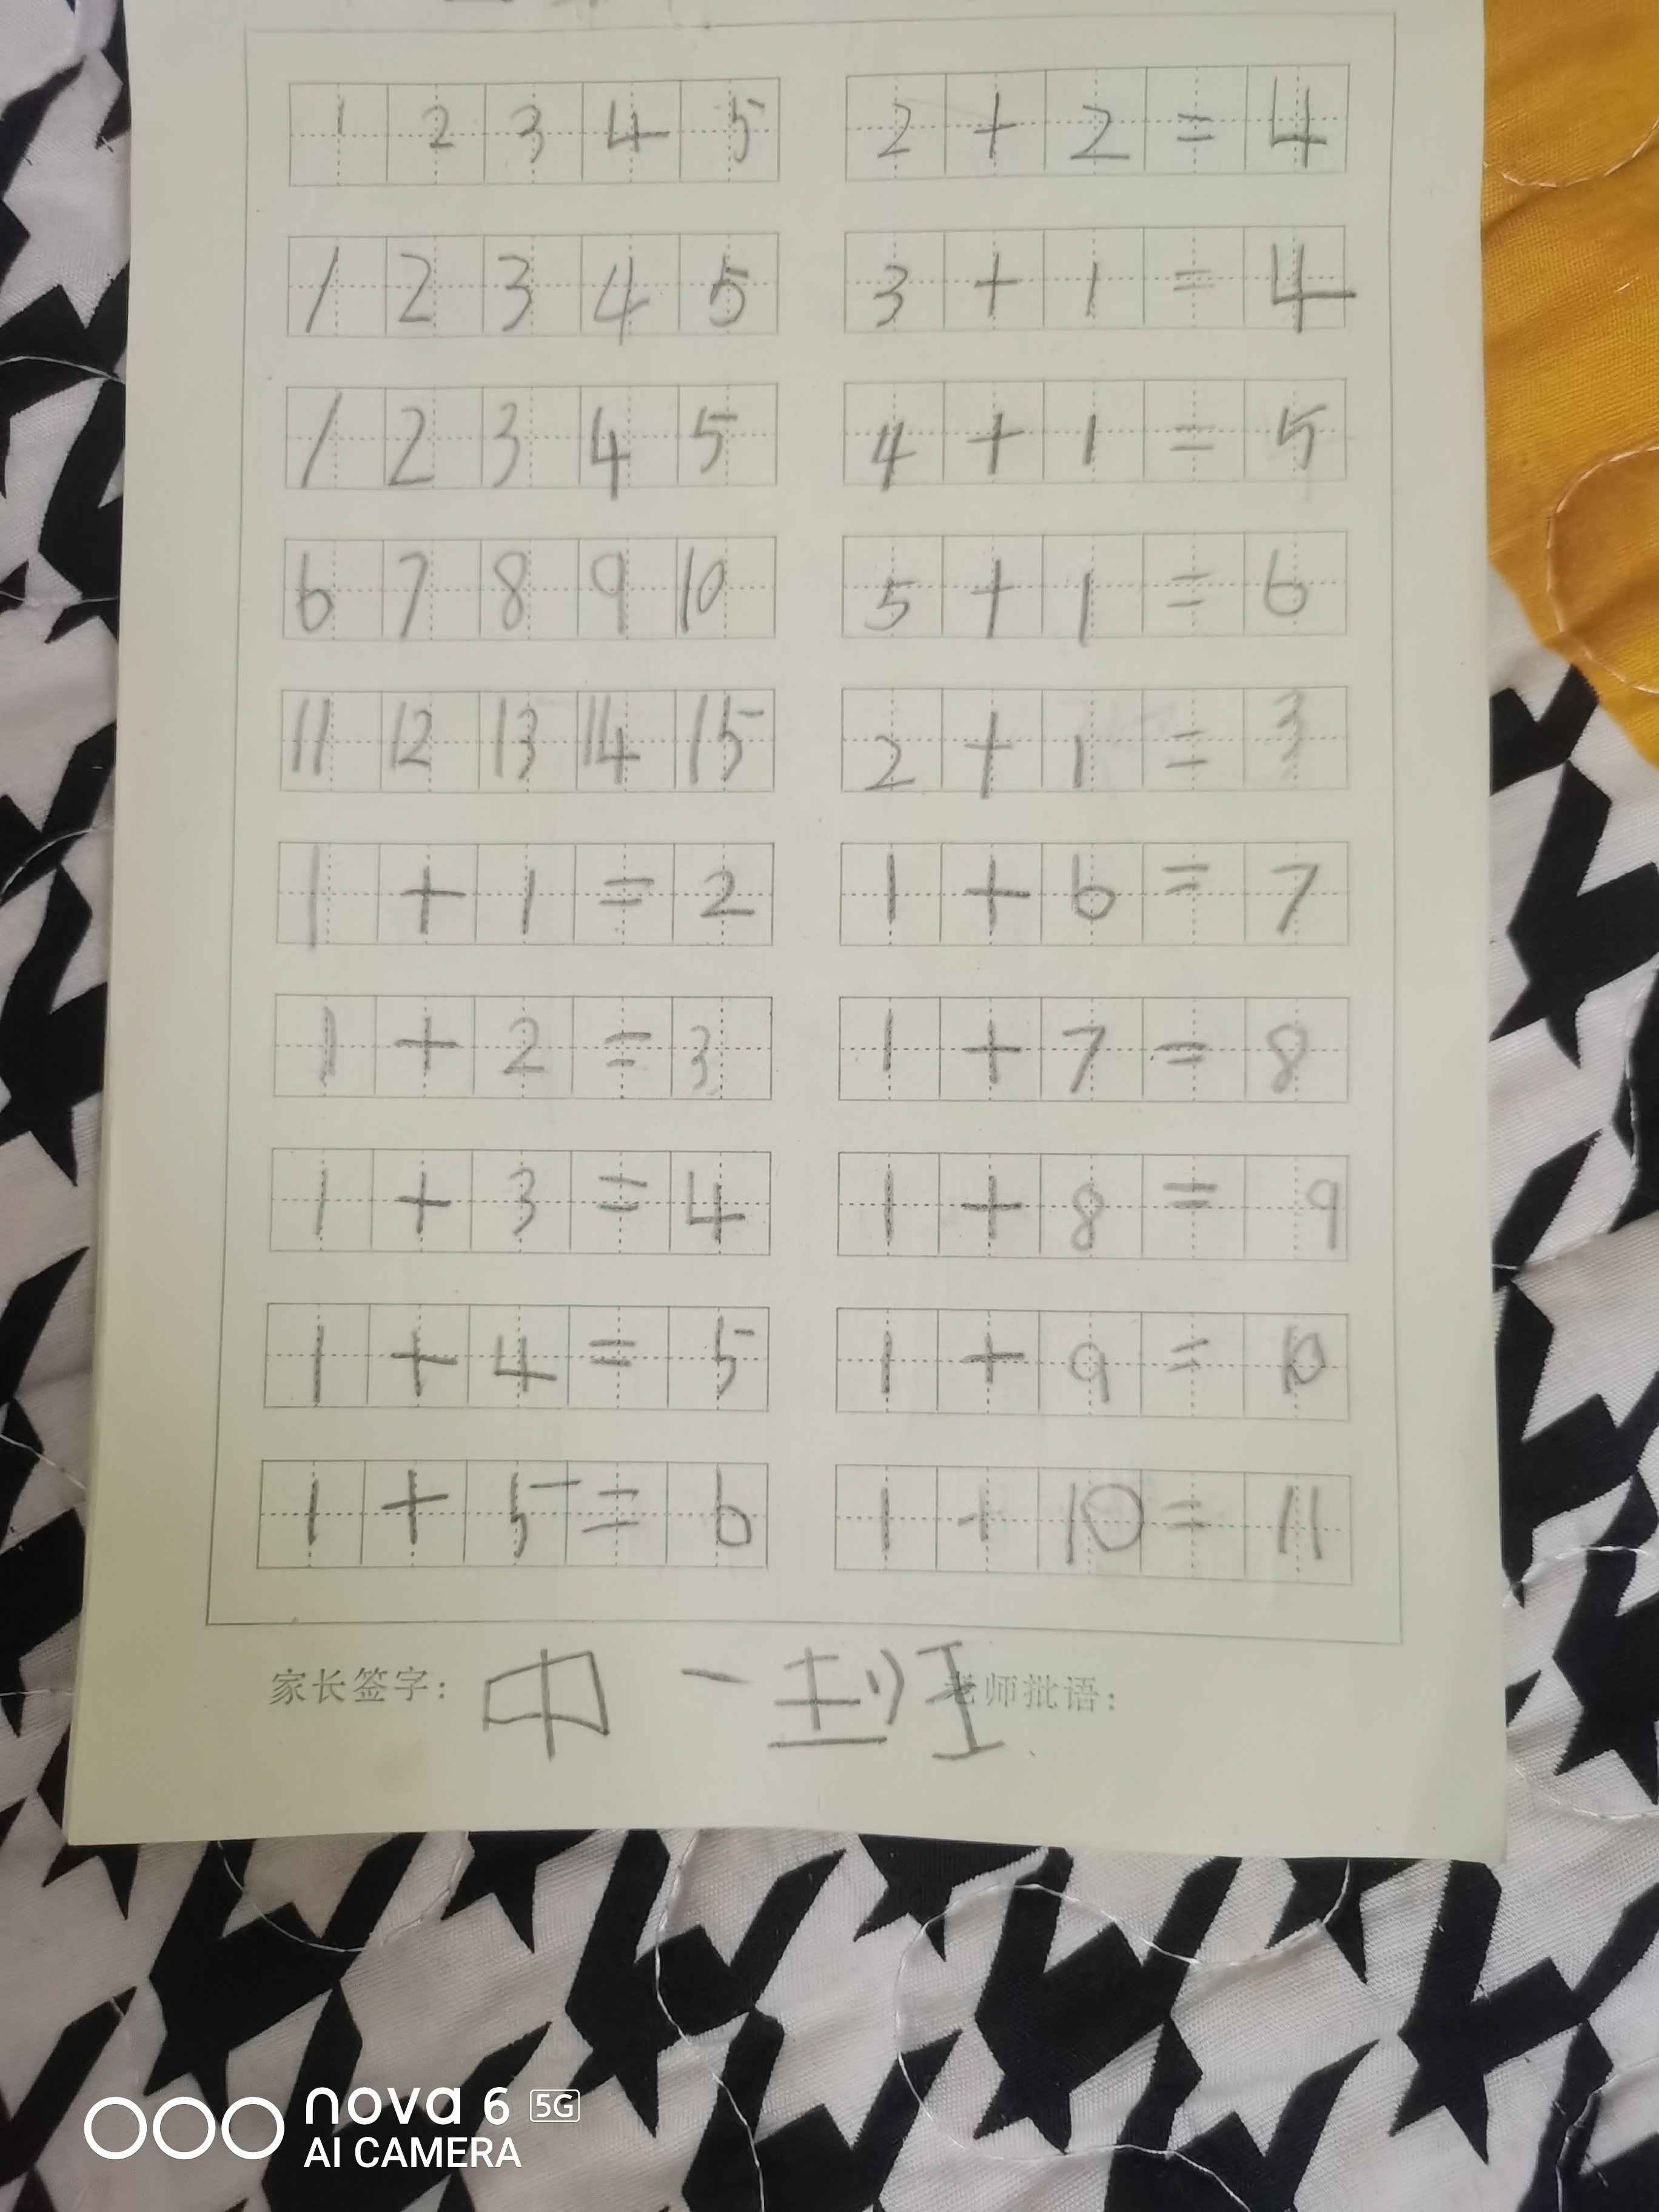 1 2 3 4 5
1 2 3 4 5
1 2 3 4 5
6 7 8 9 10
11 12 13 14 15
1 + 1 = 2
1 + 2 = 3
1 + 3 = 4
1 + 4 = 5
1 + 5 = 6
2 + 2 = 4
3 + 1 = 4
4 + 1 = 5
5 + 1 = 6
2 + 1 = 3
1 + 6 = 7
1 + 7 = 8
1 + 8 = 9
1 + 9 = 10
1 + 10 = 11
家长签字: 中一班 老师批语:
nova 6 5G
AI CAMERA